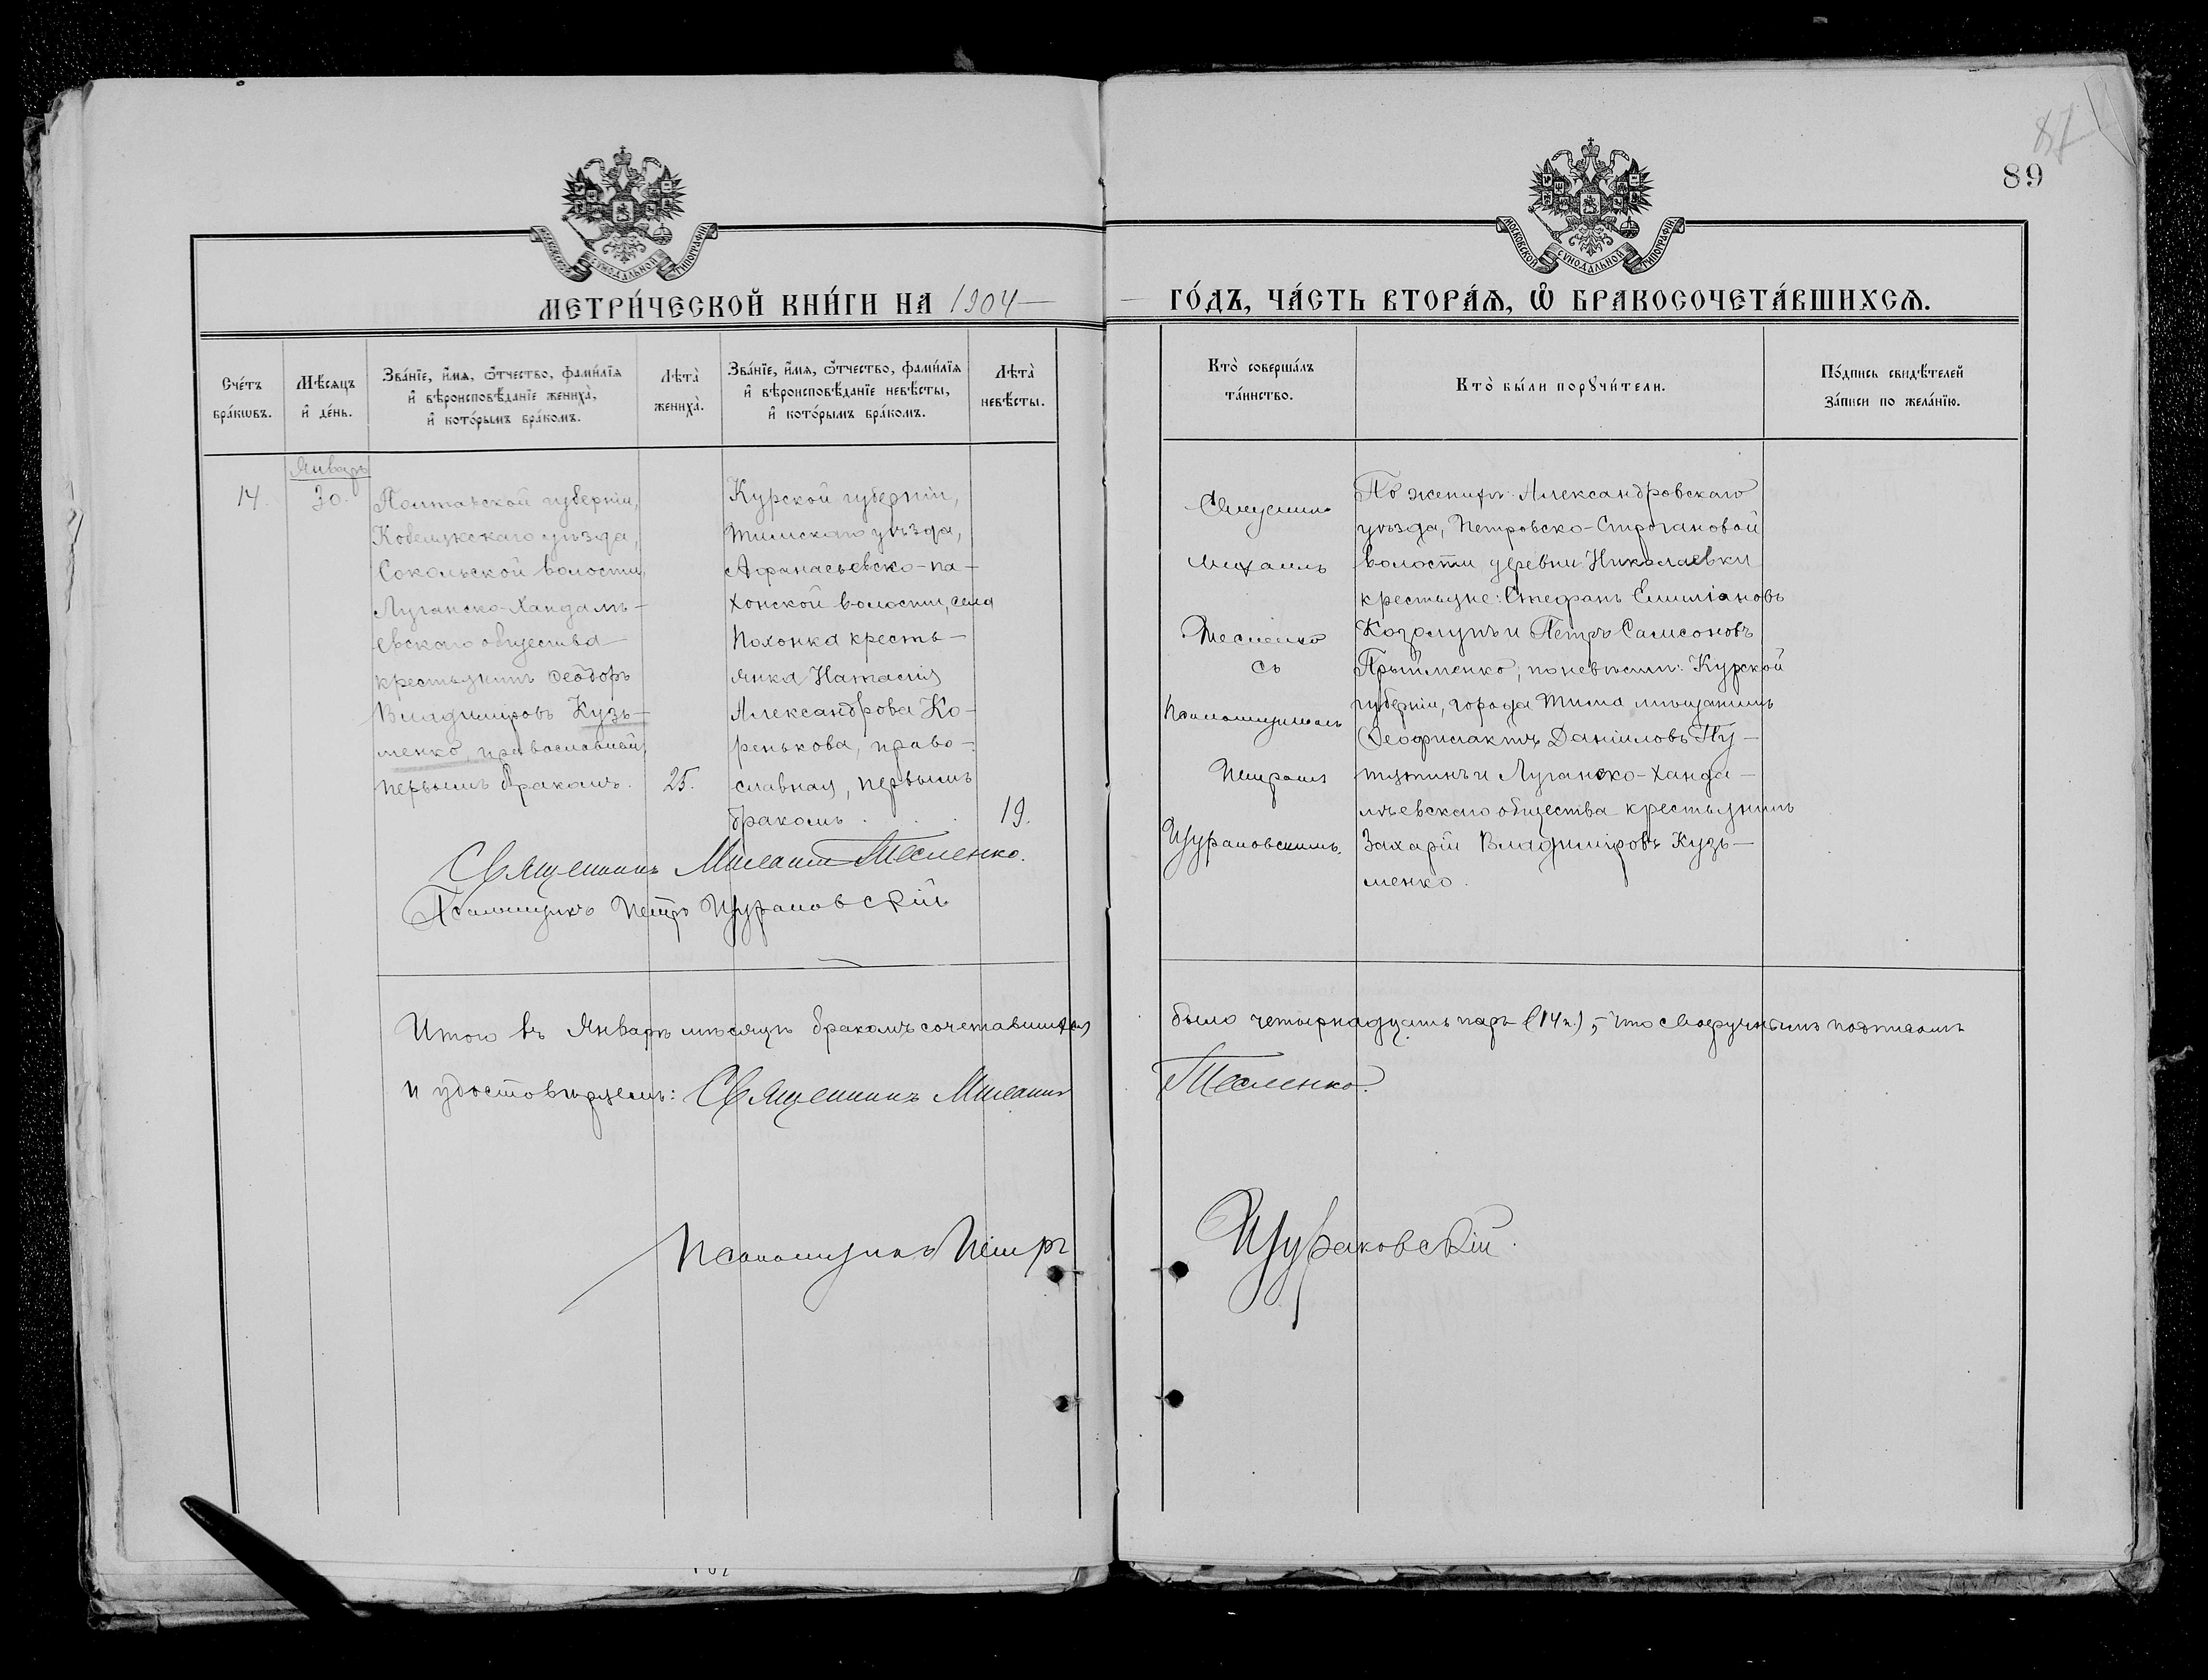 87
89
МОСКОВСКОЙ СУНОДАЛЬНОЙ ТИПОГРАФІИ
МОСКОВСКОЙ СУНОДАЛЬНОЙ ТИПОГРАФІИ
МЕТРИ́ЧЕСКОЙ КНИ́ГИ НА 1904
ГО́ДЪ, ЧА́СТЬ ВТОРА́Ѧ, Ѽ БРАКОСОЧЕТА́ВШИХСѦ.
Сче́тъ
бра́кѡвъ.
Мѣ́сѧцъ
и҆ де́нь.
Зва́нїе, и҆́мѧ, ѻ҆́тчество, фами́лїѧ
и҆ вѣроисповѣ́данїе жениха̀,
и҆ кото́рымъ бра́комъ.
Лѣта̀
жениха̀.
Зва́нїе, и҆́мѧ, ѻ҆́тчество, фами́лїѧ
и҆ вѣроисповѣ́данїе невѣ́сты,
и҆ кото́рымъ бра́комъ.
Лѣта̀
невѣ́сты.
Кто̀ соверша́лъ
та́инство.
Кто̀ бы́ли порꙋчи́тели.
По́дпись свидѣ́телей
за́писи по жела́нїю.
Январь
14.
30.
Полтавской губерніи,
Кобелякскаго уѣзда,
Сокольской волости,
Луганско-Хандалѣ-
евскаго общества
крестьянинъ Ѳеодоръ
Владиміровъ Кузь-
менко, православный,
первымъ бракомъ.
25.
Курской губерніи,
Тимскаго уѣзда,
Афанасьевско-па-
хонской волости, села
Похонка кресть-
янка Наталія
Александрова Ко-
ренькова, право-
славная, первымъ
бракомъ . . .
19.
Священникъ
Михаилъ
Тесленко
съ
Псаломщикомъ
Петромъ
Щураковскимъ.
По женихѣ: Александровскаго
уѣзда, Петровско-Строгановой
волости деревни Николаевки
крестьяне: Стефанъ Емиліановъ
Козолупъ и Петръ Самсоновъ
Прыйменко; по невѣстѣ: Курской
губерніи, города Тима мѣщанинъ
Ѳеофилактъ Даніиловъ Пу-
тятинъ и Луганско-Ханда-
лѣевскаго общества крестьянинъ
Захарій Владиміровъ Кузь-
менко.
Священникъ Михаилъ Тесленко.
Псаломщикъ Петръ Щураковскій
Итого въ Январѣ мѣсяцѣ бракомъ сочетавшихся было четырнадцать паръ (14 п.), - что своеручнымъ подписомъ
и удостовѣряемъ: Священникъ Михаилъ Тесленко.
Псаломщикъ Петръ Щураковскій.